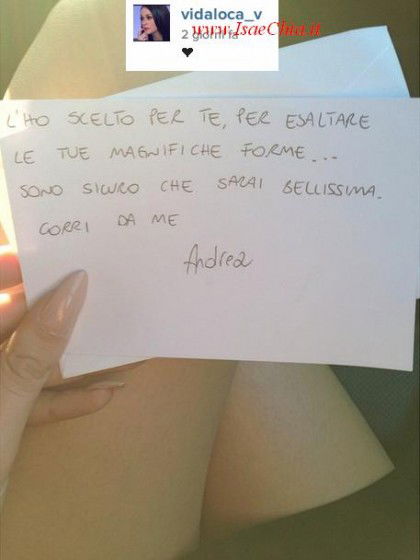 vidaloca_v
2 giorni fa
www.IsaeChia.it
❤
L'HO SCELTO PER TE, PER ESALTARE
LE TUE MAGNIFICHE FORME...
SONO SICURO CHE SARAI BELLISSIMA.
CORRI DA ME
Andrea